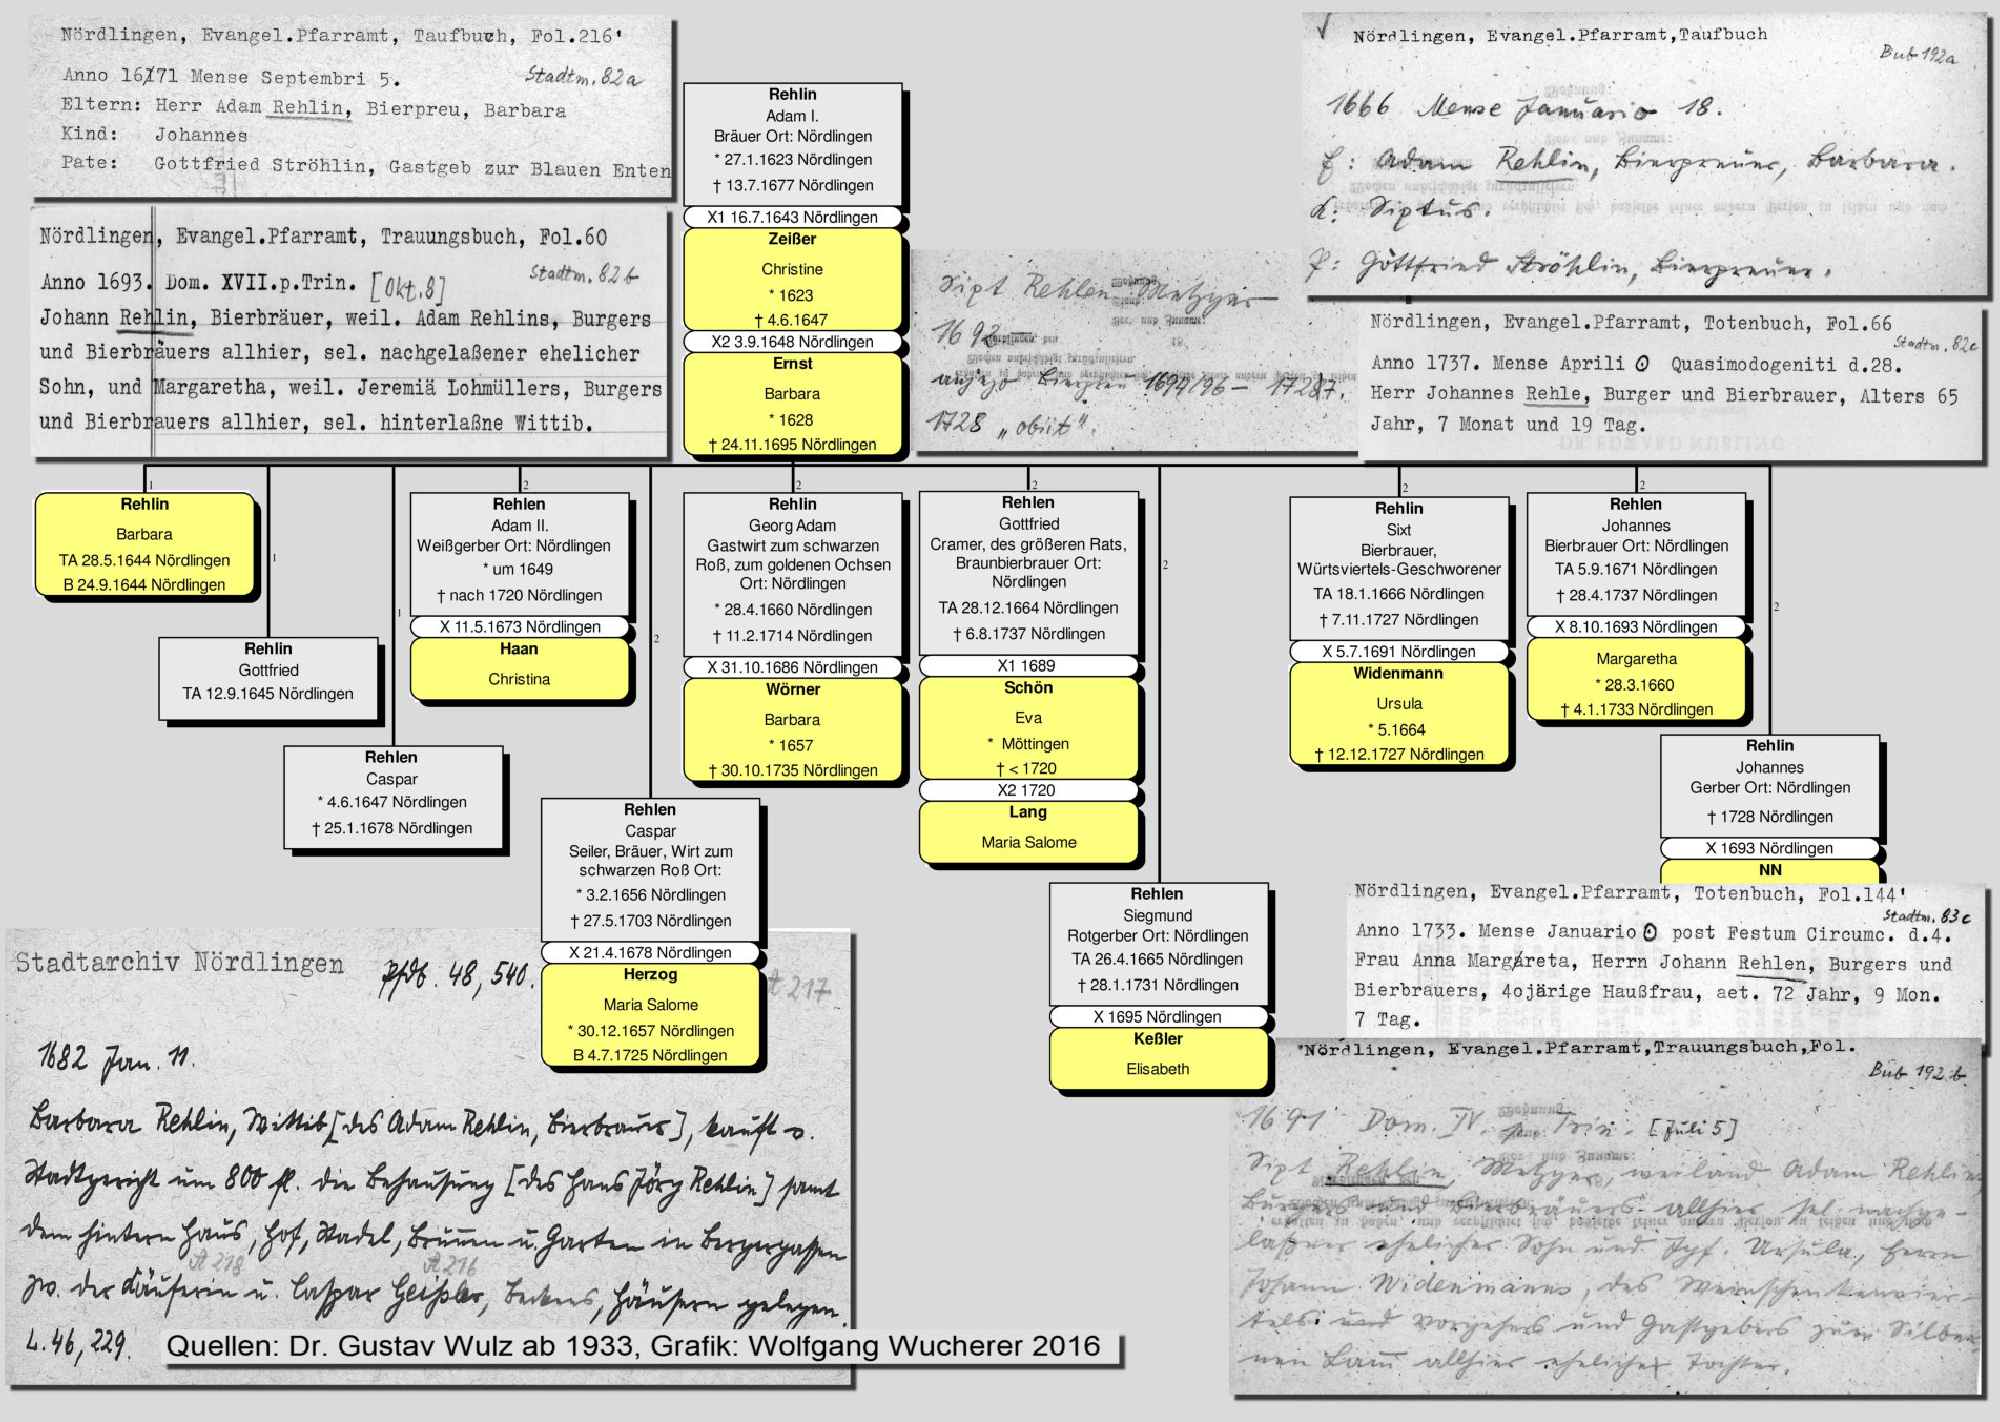 Nördlingen, Evangel.Pfarramt, Taufbuch, Fol.216'
Anno 16171 Mense Septembri 5. Stadtm. 82a
Eltern: Herr Adam Rehlin, Bierpreu, Barbara
Kind: Johannes
Pate: Gottfried Ströhlin, Gastgeb zur Blauen Enten
Nördlingen, Evangel.Pfarramt, Trauungsbuch, Fol.60
Stadtm. 82b
Anno 1693. Dom. XVII.p.Trin. [Okt.8]
Johann Rehlin, Bierbräuer, weil. Adam Rehlins, Burgers
und Bierbräuers allhier, sel. nachgelaßener ehelicher
Sohn, und Margaretha, weil. Jeremiä Lohmüllers, Burgers
und Bierbrauers allhier, sel. hinterlaßne Wittib.
Rehlin
Adam I.
Bräuer Ort: Nördlingen
* 27.1.1623 Nördlingen
† 13.7.1677 Nördlingen
X1 16.7.1643 Nördlingen
Zeißer
Christine
* 1623
† 4.6.1647
X2 3.9.1648 Nördlingen
Ernst
Barbara
* 1628
† 24.11.1695 Nördlingen
Nördlingen, Evangel.Pfarramt,Taufbuch
Bub 192a
1666 Mense Januario 18.
f: Adam Rehlin, Bierpreuer, Barbara.
d: Sixtus.
P: Gottfried Ströhlin, Bierpreuer.
Sixt Rehlen Metzger
1692
anjezo Bierpreu 1694/96 –
1728 „obiit".
Nördlingen, Evangel.Pfarramt, Totenbuch, Fol.66
Stadtm. 82c
Anno 1737. Mense Aprili ⊙ Quasimodogeniti d.28.
Herr Johannes Rehle, Burger und Bierbrauer, Alters 65
Jahr, 7 Monat und 19 Tag.
1
Rehlin
Barbara
TA 28.5.1644 Nördlingen
B 24.9.1644 Nördlingen
1
Rehlin
Gottfried
TA 12.9.1645 Nördlingen
1
Rehlen
Caspar
* 4.6.1647 Nördlingen
† 25.1.1678 Nördlingen
2
Rehlen
Adam II.
Weißgerber Ort: Nördlingen
* um 1649
† nach 1720 Nördlingen
X 11.5.1673 Nördlingen
Haan
Christina
2
Rehlen
Caspar
Seiler, Bräuer, Wirt zum
schwarzen Roß Ort:
* 3.2.1656 Nördlingen
† 27.5.1703 Nördlingen
X 21.4.1678 Nördlingen
Herzog
Maria Salome
* 30.12.1657 Nördlingen
B 4.7.1725 Nördlingen
2
Rehlin
Georg Adam
Gastwirt zum schwarzen
Roß, zum goldenen Ochsen
Ort: Nördlingen
* 28.4.1660 Nördlingen
† 11.2.1714 Nördlingen
X 31.10.1686 Nördlingen
Wörner
Barbara
* 1657
† 30.10.1735 Nördlingen
2
Rehlen
Gottfried
Cramer, des größeren Rats,
Braunbierbrauer Ort:
Nördlingen
TA 28.12.1664 Nördlingen
† 6.8.1737 Nördlingen
X1 1689
Schön
Eva
* Möttingen
† < 1720
X2 1720
Lang
Maria Salome
2
Rehlen
Siegmund
Rotgerber Ort: Nördlingen
TA 26.4.1665 Nördlingen
† 28.1.1731 Nördlingen
X 1695 Nördlingen
Keßler
Elisabeth
2
Rehlin
Sixt
Bierbrauer,
Würtsviertels-Geschworener
TA 18.1.1666 Nördlingen
† 7.11.1727 Nördlingen
X 5.7.1691 Nördlingen
Widenmann
Ursula
* 5.1664
† 12.12.1727 Nördlingen
2
Rehlen
Johannes
Bierbrauer Ort: Nördlingen
TA 5.9.1671 Nördlingen
† 28.4.1737 Nördlingen
X 8.10.1693 Nördlingen
Margaretha
* 28.3.1660
† 4.1.1733 Nördlingen
2
Rehlin
Johannes
Gerber Ort: Nördlingen
† 1728 Nördlingen
X 1693 Nördlingen
NN
Nördlingen, Evangel.Pfarramt, Totenbuch, Fol.144'
Stadtm. 83c
Anno 1733. Mense Januario ⊙ post Festum Circumc. d.4.
Frau Anna Margareta, Herrn Johann Rehlen, Burgers und
Bierbrauers, 4ojärige Haußfrau, aet. 72 Jahr, 9 Mon.
7 Tag.
Nördlingen, Evangel.Pfarramt,Trauungsbuch,Fol.
Bub 192 b.
1691 Dom. IV. p. Trin. [Juli 5]
Sixt Rehlin, Metzger, weiland Adam Rehlin
Burgers und Bierbräuers allhier sel. nachge-
laßner ehelicher Sohn und Jgf. Ursula, Herrn
Johann Widenmanns, des Weinschenkenvier-
tels und Vorgehers und Gastgebers zum Silber-
nen Lam allhier ehelicher Tochter.
Stadtarchiv Nördlingen Pfdb. 48, 540. A 217
1682 Jan. 11.
Barbara Rehlin, Wittib [des Adam Rehlin, Bierbrauers], kauft v.
Stadtgericht um 800 fl. die Behausung [des Hans Jörg Rehlin] samt
dem hintern Haus, Hof, Stadel, Brunnen u. Garten in Bergergassen
A 218 A 216
zw. der Käuferin u. Caspar Geißler, Beckens, Häusern gelegen.
L. 46, 229.
Quellen: Dr. Gustav Wulz ab 1933, Grafik: Wolfgang Wucherer 2016